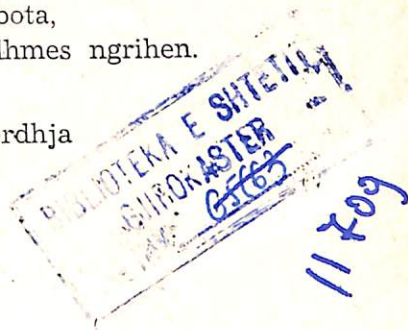 bota,
dhmes ngrihen.
rdhja
BIBLIOTEKA E SHTETIT
GJIROKASTER
65163
11709